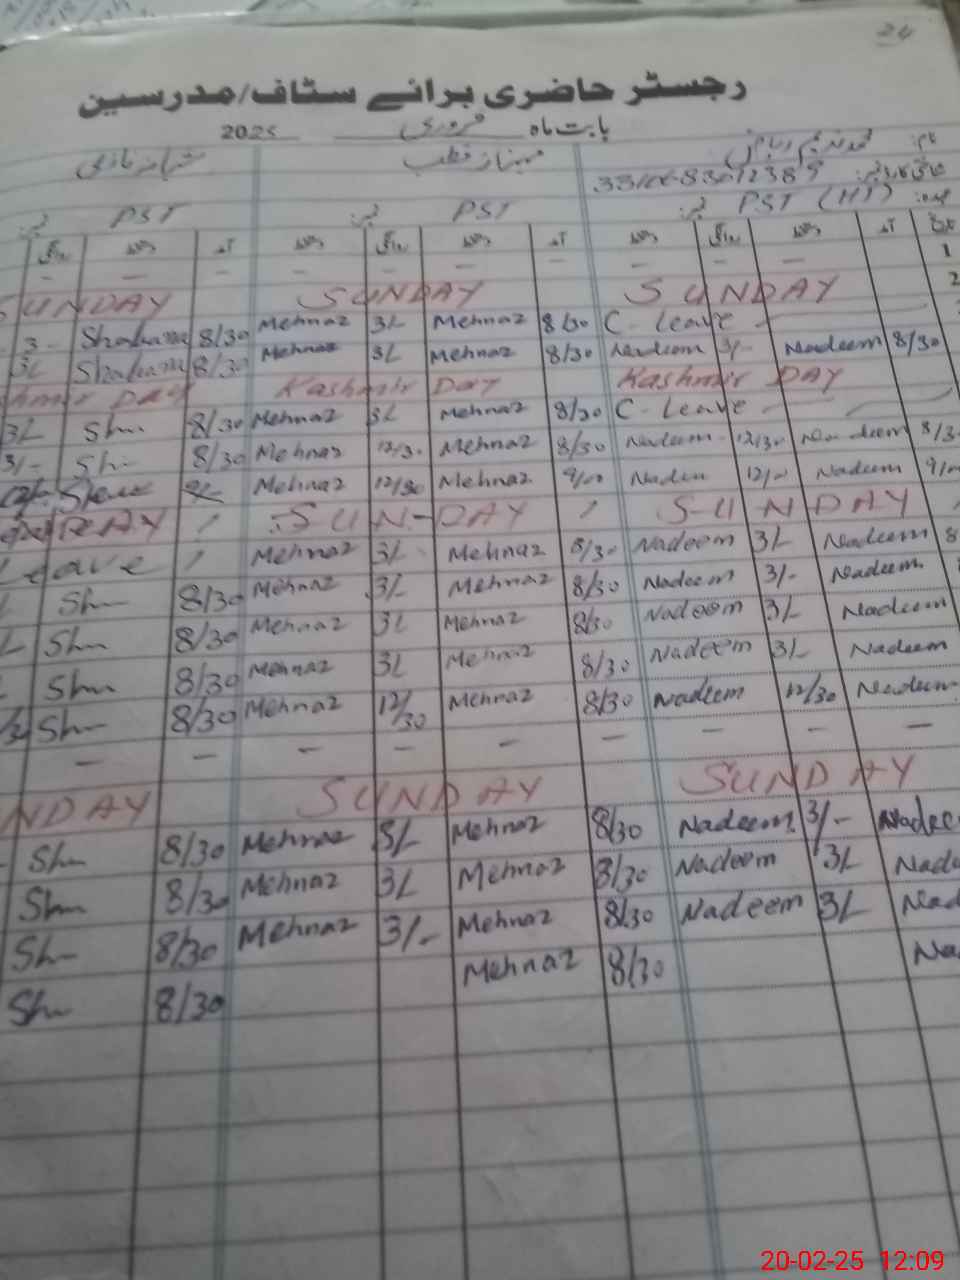 24
رجسٹر حاضری برائے سٹاف/مدرسین
بابت ماہ فروری 2025
نام: محمد ندیم ریاض مہناز قطب
شناختی کارڈ نمبر:
عہدہ: PST (HT) PST PST
تاریخ آمد دستخط روانگی دستخط آمد دستخط روانگی دستخط آمد دستخط روانگی
1 — — — — — — —
2 SUNDAY SUNDAY SUNDAY
3 - Shabana 8/30 Mehnaz 3/- Mehnaz 8/30 C- Leave
3/- Shabana 8/30 Mehnaz 3/- Mehnaz 8/30 Nadeem 3/- Nadeem 8/30
shmir DAY Kashmir Day Kashmir DAY
3/- Sh 8/30 Mehnaz 3/- Mehnaz 8/30 C- Leave
3/- Sh 8/30 Mehnaz 12/30 Mehnaz 8/30 Nadeem 12/30 Nadeem 8/3
Mehnaz 12/30 Mehnaz 9/00 Nadeem 12/- Nadeem 9/
DAY SUN-DAY SUNDAY
Leave Mehnaz 3/- Mehnaz 8/30 Nadeem 3/- Nadeem 8
Sh 8/30 Mehnaz 3/- Mehnaz 8/30 Nadeem 3/- Nadeem
Sh 8/30 Mehnaz 3/- Mehnaz 8/30 Nadeem 3/- Nadeem
Sh 8/30 Mehnaz 3/- Mehnaz 8/30 Nadeem 3/- Nadeem
Sh 8/30 Mehnaz 12/30 Mehnaz 8/30 Nadeem 12/30 Nadeem
— — — — — — — — —
NDAY SUNDAY SUNDAY
Sh 8/30 Mehnaz 3/- Mehnaz 8/30 Nadeem 3/- Nadee
Sh 8/30 Mehnaz 3/- Mehnaz 8/30 Nadeem 3/- Nad
Sh 8/30 Mehnaz 3/- Mehnaz 8/30 Nadeem 3/- Nad
Sh 8/30 Mehnaz 8/30 Na
20-02-25 12:09